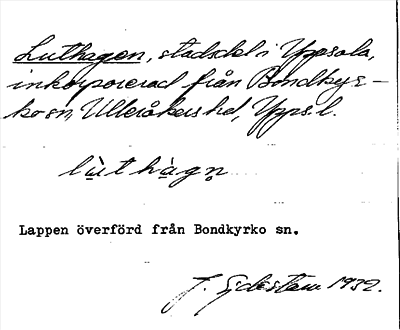 Luthagen, stadsdel i Uppsala,
inkorporerad från Bondkyr-
ko sn, Ulleråkers hd, Upps. l.
lu̠̇t hȧ̠gn̥
Lappen överförd från Bondkyrko sn.
J. Sjdestam 1932.